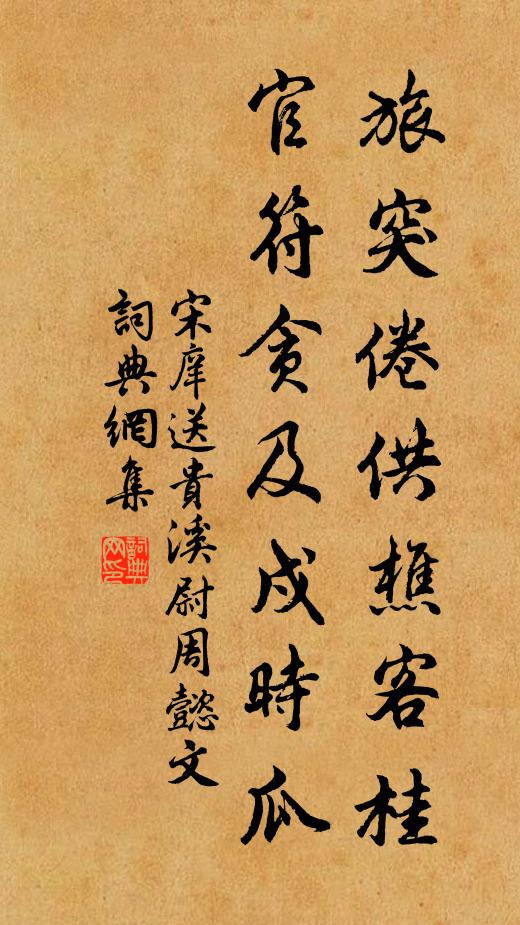 旅突倦供樵客桂
官符貪及戍時瓜
宋庠送貴溪尉周懿文
詞典網集
詞典網印